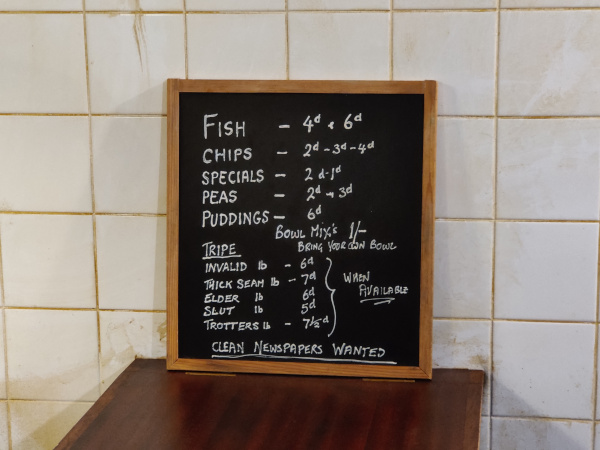 FISH – 4d & 6d
CHIPS – 2d – 3d – 4d
SPECIALS – 2d - 1d
PEAS – 2d → 3d
PUDDINGS – 6d
BOWL MIX's 1/-
BRING YOUR OWN BOWL
TRIPE
INVALID lb – 6d
THICK SEAM lb – 7d
ELDER lb 6d
SLUT lb 5d
TROTTERS lb – 7½d
WHEN
AVAILABLE
CLEAN NEWSPAPERS WANTED